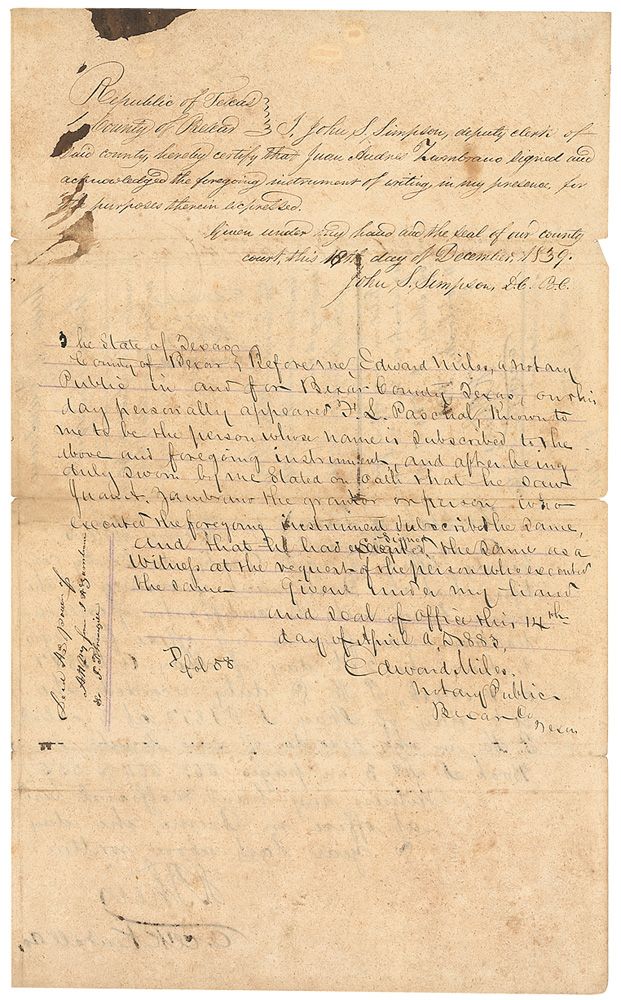 Republic of Texas
County of Bexar } I, John S. Simpson, deputy clerk of
said county, hereby certify that Juan Andres Zumbrano signed and
acknowledged the foregoing instrument of writing, in my presence, for
the purposes therein expressed.
Given under my hand and the seal of our county
court, this 18th day of December, 1839.
John S. Simpson, D.C. B.C.
The State of Texas
County of Bexar } Before me Edward Miles, a Notary
Public in and for Bexar County Texas, on this
day personally appeared F. L. Paschal, Known to
me to be the person whose name is subscribed to the
above and foregoing instrument, and after being
duly sworn by me stated on oath that he saw
Juan A. Zambrano the grantor or person who
executed the foregoing instrument subscribe the same,
and that he had signed the same as a
witness at the request of the person who executed
the same Given under my hand
and seal of office this 14th
day of April A.D. 1883,
Edward Miles.
Notary Public
Bexar Co
Texas
fol 58